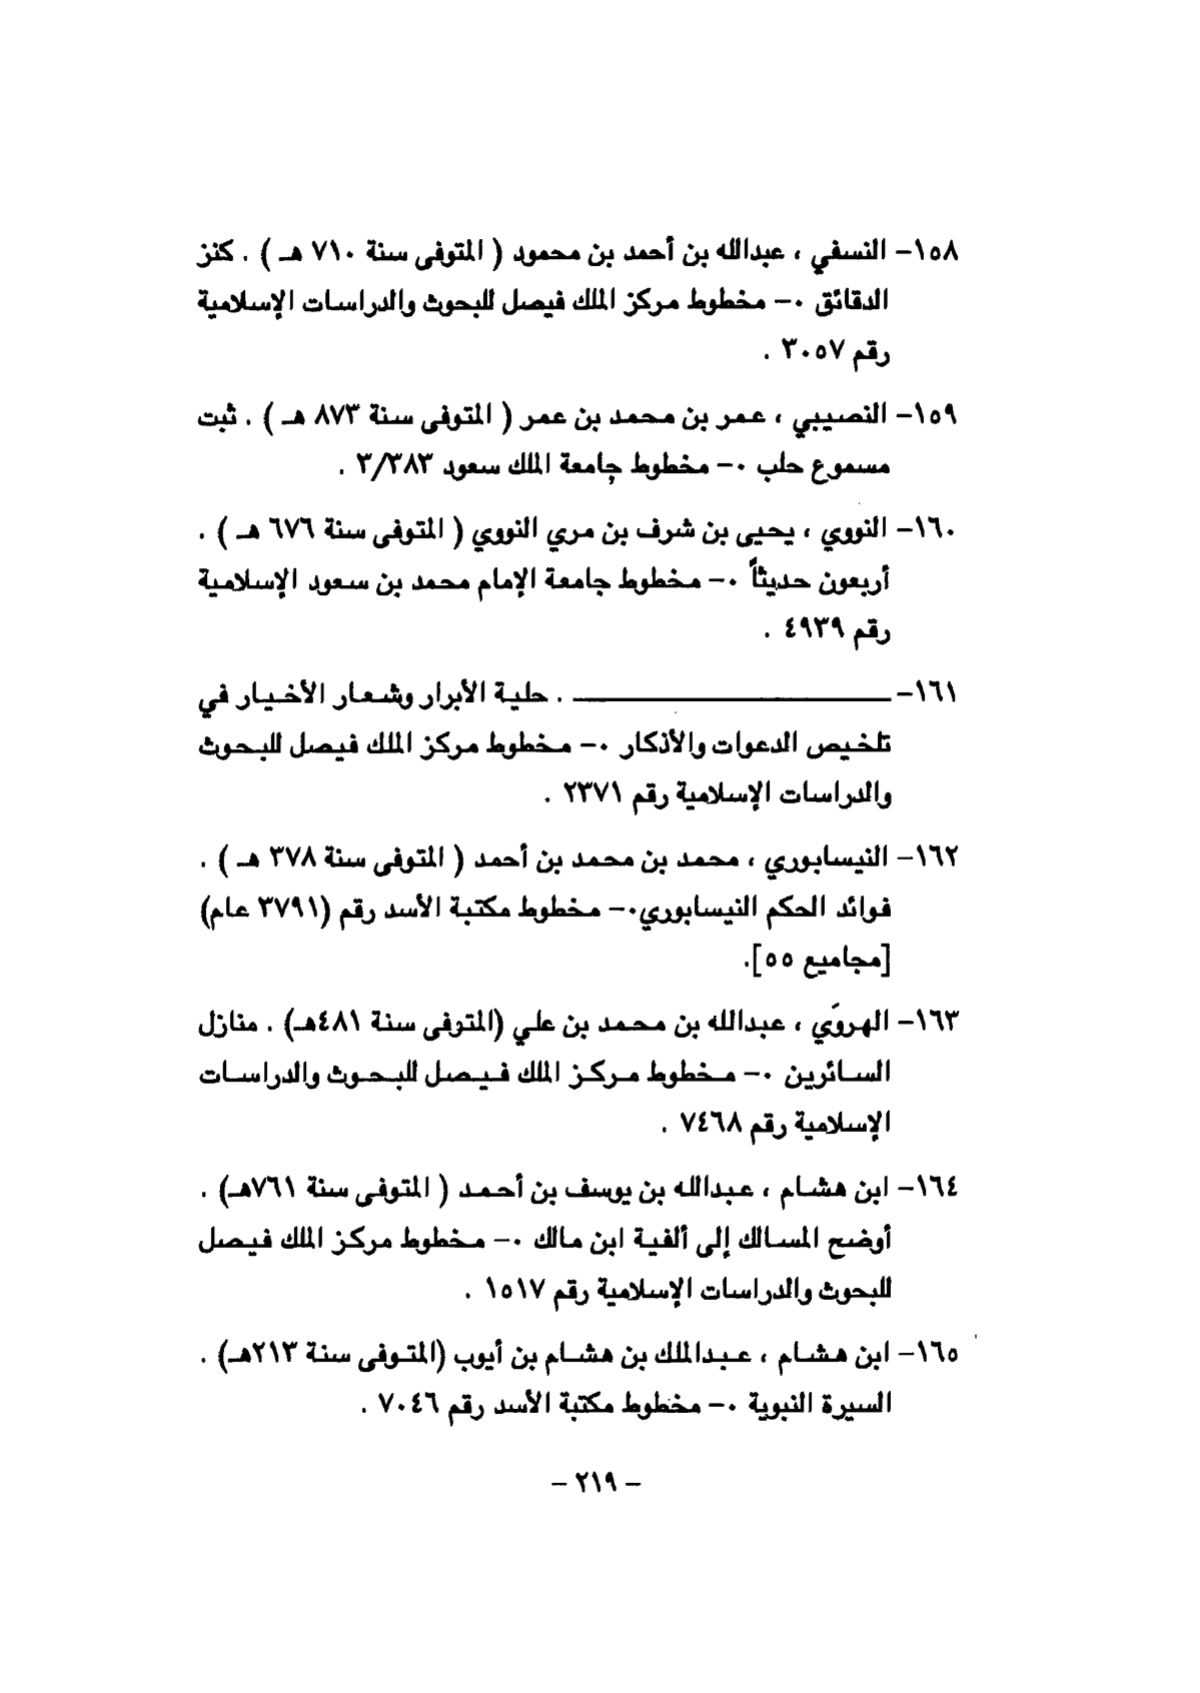 ١٥٨- النسفي ، عبدالله بن أحمد بن محمود ( المتوفى سنة ٧١٠ هـ ) . كنز
الدقائق ٠- مخطوط مركز الملك فيصل للبحوث والدراسات الإسلامية
رقم ٣٠٥٧ .
١٥٩- النصيبي ، عمر بن محمد بن عمر ( المتوفى سنة ٨٧٣ هـ ) . ثبت
مسموع حلب ٠- مخطوط جامعة الملك سعود ٣/٣٨٣ .
١٦٠- النووي ، يحيى بن شرف بن مري النووي ( المتوفى سنة ٦٧٦ هـ ) .
أربعون حديثاً ٠- مخطوط جامعة الإمام محمد بن سعود الإسلامية
رقم ٤٩٣٩ .
١٦١- ـــــــــــــــــــــ . حلية الأبرار وشعار الأخيار في
تلخيص الدعوات والأذكار ٠- مخطوط مركز الملك فيصل للبحوث
والدراسات الإسلامية رقم ٢٣٧١ .
١٦٢- النيسابوري ، محمد بن محمد بن أحمد ( المتوفى سنة ٣٧٨ هـ ) .
فوائد الحكم النيسابوري٠- مخطوط مكتبة الأسد رقم (٣٧٩١ عام)
[مجاميع ٥٥].
١٦٣- الهروَي ، عبدالله بن محمد بن علي (المتوفى سنة ٤٨١هـ) . منازل
السائرين ٠- مخطوط مركز الملك فيصل للبحوث والدراسات
الإسلامية رقم ٧٤٦٨ .
١٦٤- ابن هشام ، عبدالله بن يوسف بن أحمد ( المتوفى سنة ٧٦١هـ) .
أوضح المسالك إلى ألفية ابن مالك ٠- مخطوط مركز الملك فيصل
للبحوث والدراسات الإسلامية رقم ١٥١٧ .
١٦٥- ابن هشام ، عبدالملك بن هشام بن أيوب (المتوفى سنة ٢١٣هـ) .
السيرة النبوية ٠- مخطوط مكتبة الأسد رقم ٧٠٤٦ .
- ٢١٩ -